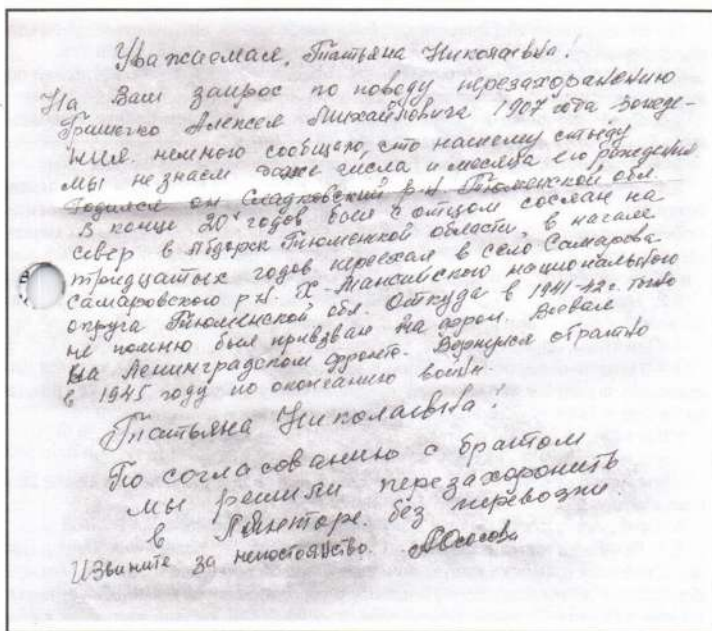 Уважаемая, Татьяна Николаевна!
На Ваш запрос по поводу перезахоронению
Алексея Михайловича 1907 года рожде-
ния немного сообщаю, что нашему стыду
мы не знаем даже числа и месяца его рождения.
Родился он Сладковский р-н Тюменской обл.
В конце 20х годов был с отцом сослан на
север в Абдорск Тюменской области, в начале
тридцатых годов переехал в село Самарова
Самаровского р-н. Х-Мансийского национального
округа Тюменской обл. Откуда в 1941-42г. точно
не помню был призван на фронт. Воевал
на Ленинградском фронте. Вернулся обратно
в 1945 году по окончанию войны.
Татьяна Николаевна!
По согласованию с братом
мы решили перезахоронить
в без перевозки.
Извините за непостоянство.